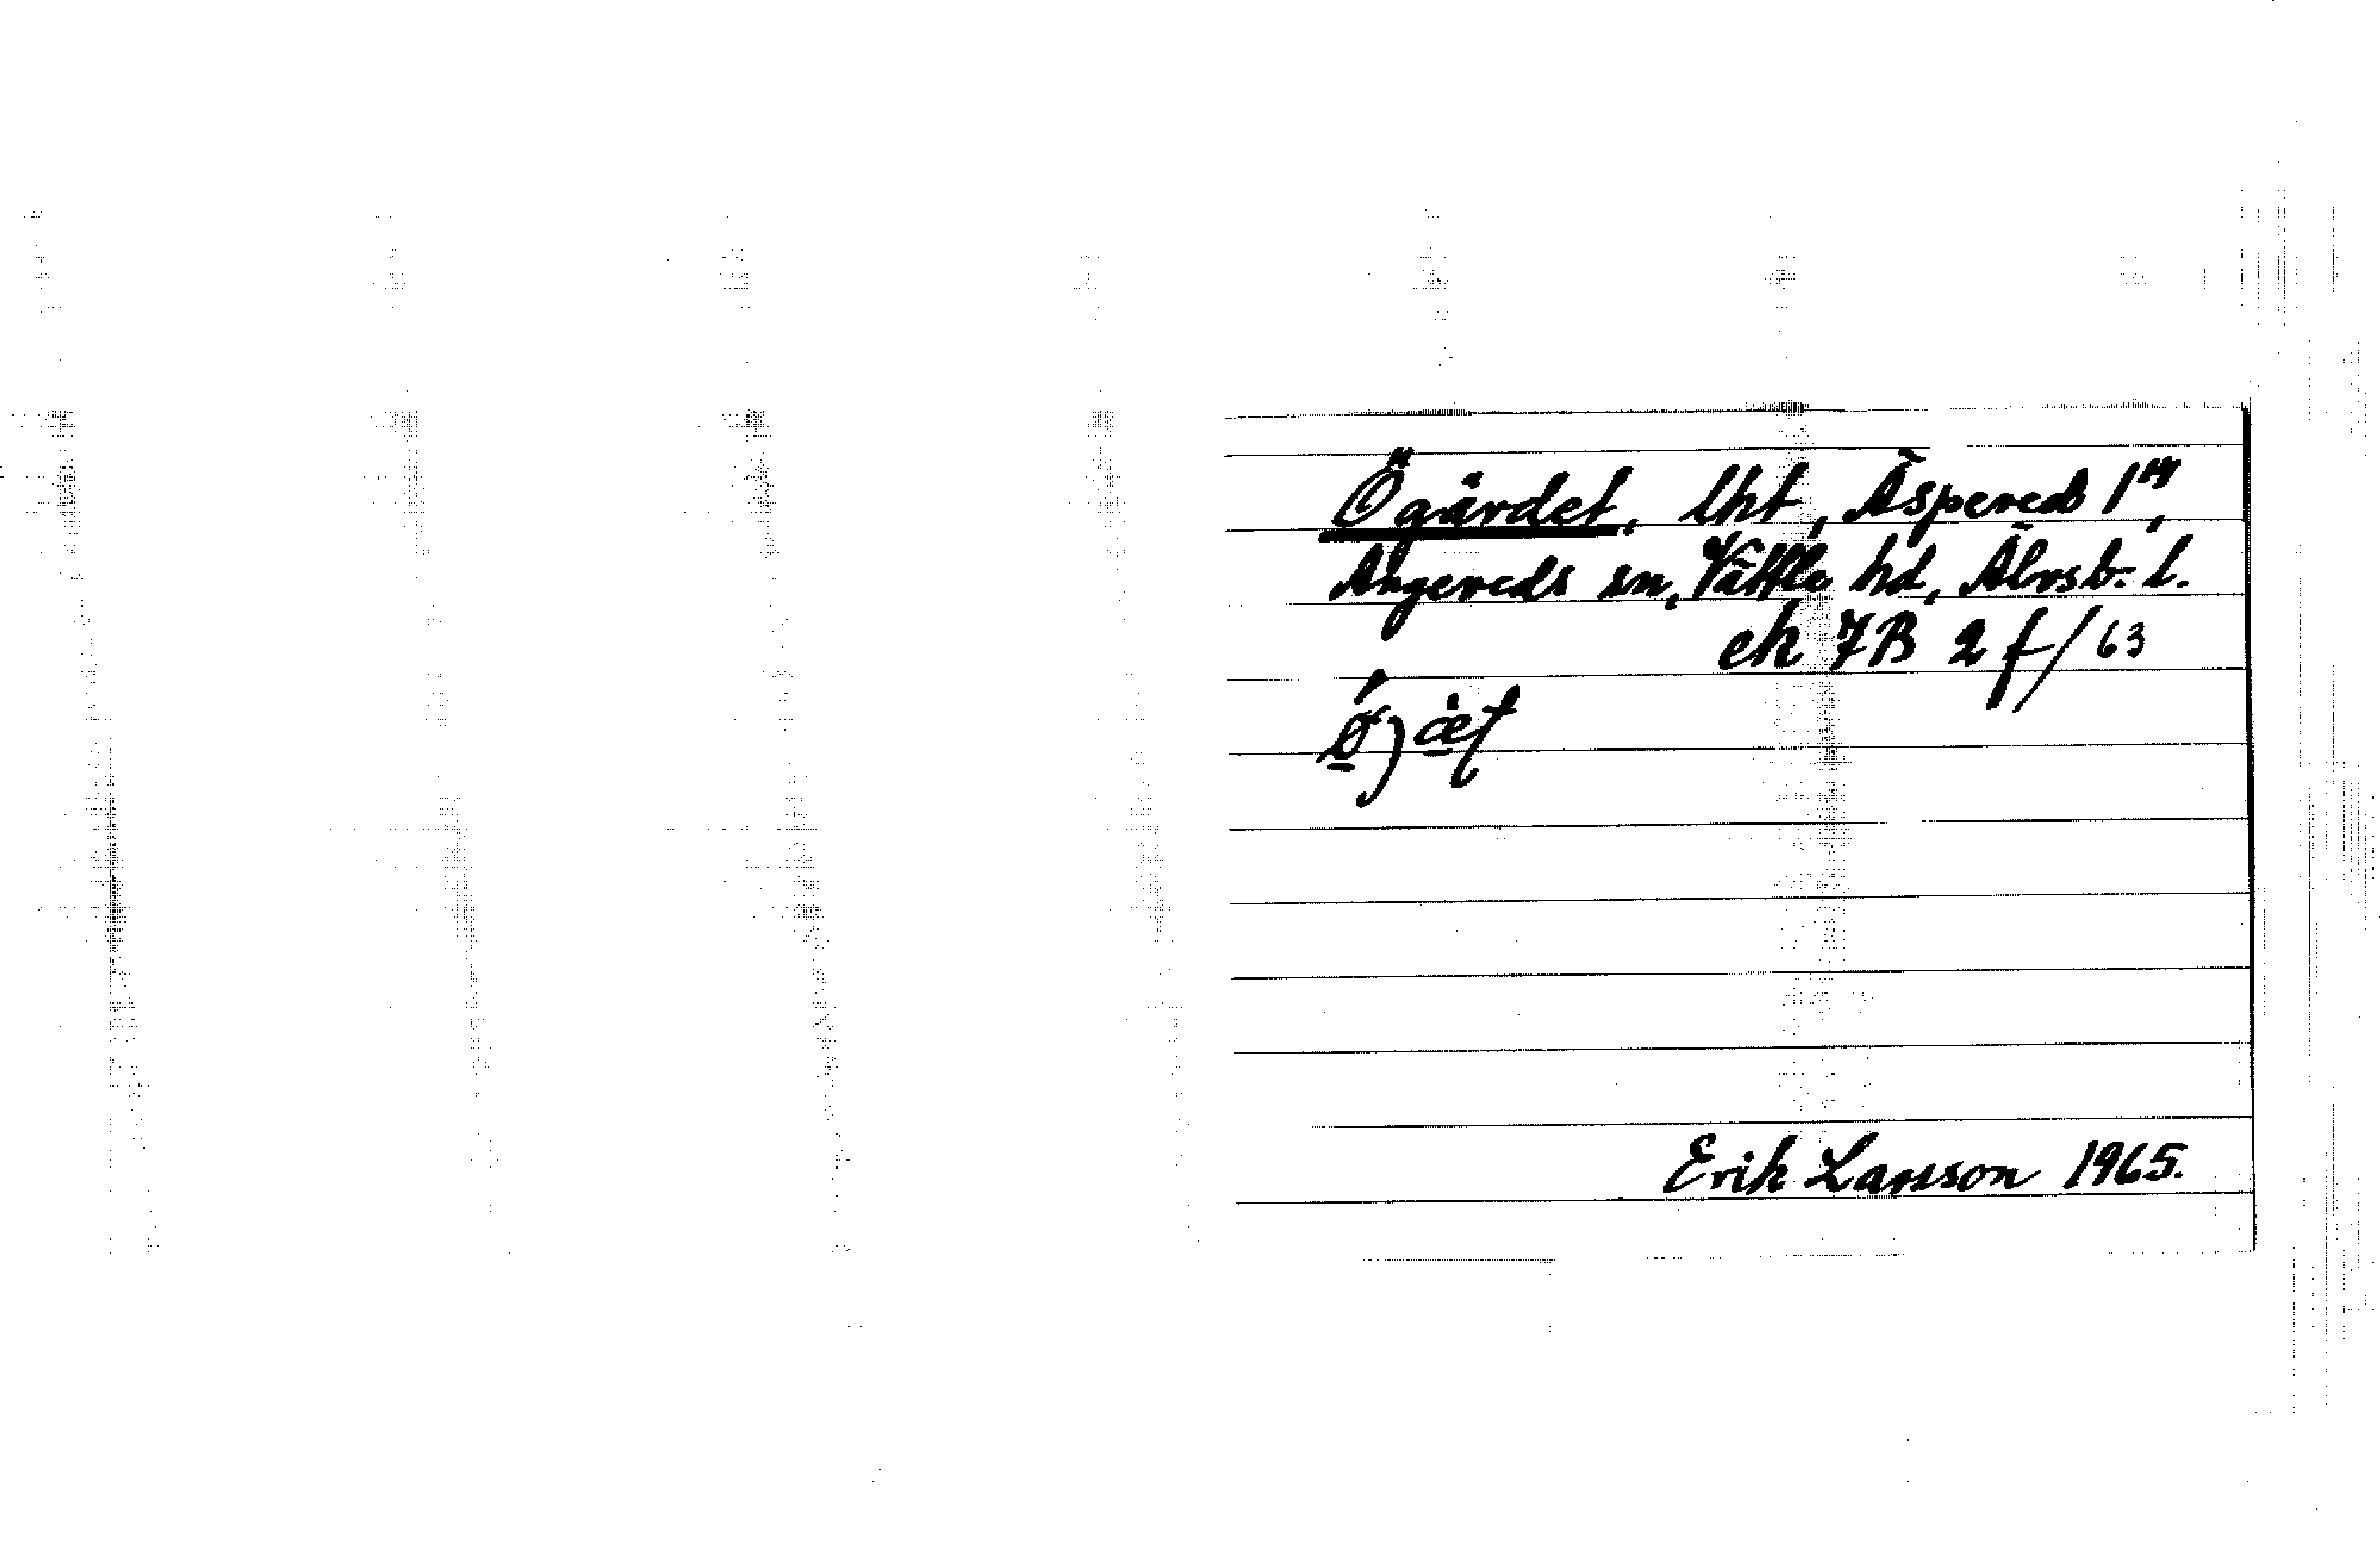 Ögärdet, lht, Äspereds 1¹⁴,
Angereds sn, Vättle hd, Älvsb. l.
ek 7B 2f/63
Erik Larsson 1965.